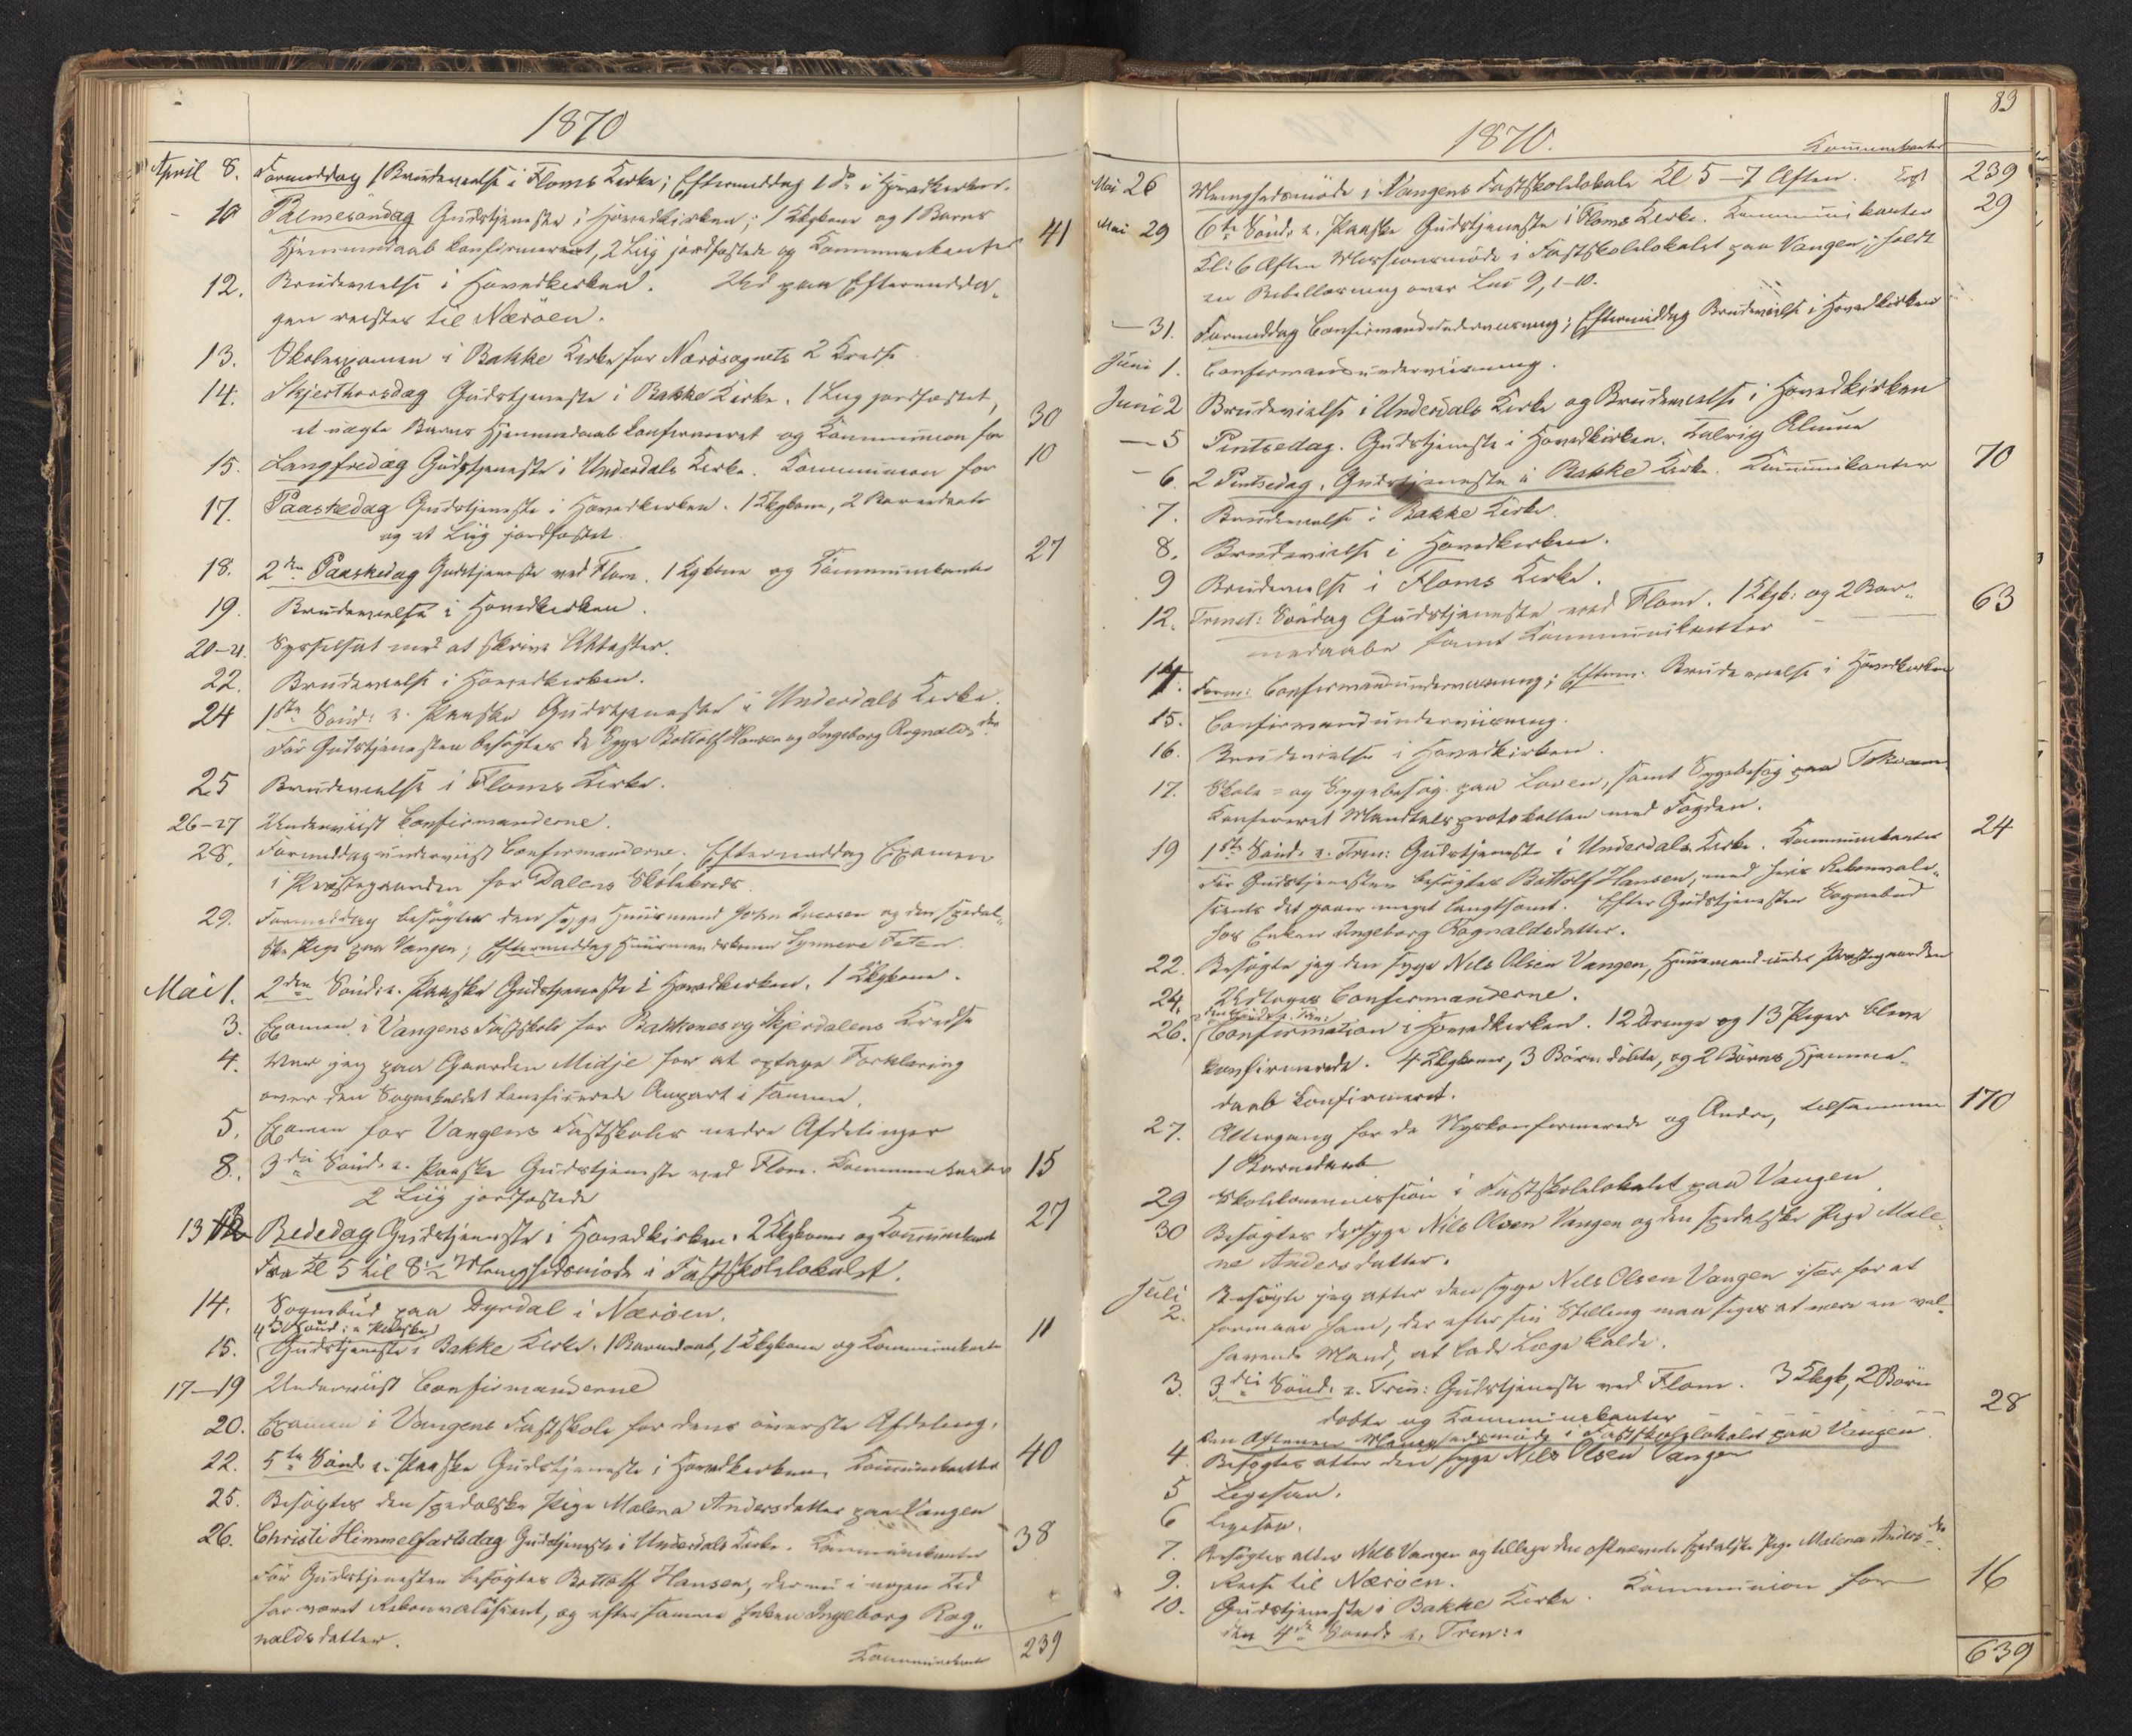 1870
April 8. Formiddag 1 Brudevielse i Floms Kirke; Eftermiddag 1 Do i Hovedkirken.
10 Palmesöndag Gudstjeneste i Hovedkirken; 1 Kkgkone og 1 Barns
Hjemmedaab konfirmeret, 2 Liig jordfæstede og Kommunikanter 41
12. Brudevielse i Hovedkirken. Ud paa Eftermidda-
gen reistes til Næröen.
13. Skoleexamen i Bakke Kirke for Nærösognets 2 Kredse
14. Skjerthorsdag Gudstjeneste i Bakke Kirke. 1 Liig jordfæstet,
et uægte Barns Hjemmedaab konfirmeret og Kommunion for 30
15. Langfredag Gudstjeneste i Underdals Kirke. Kommunion for 10
17. Paaskedag Gudstjeneste i Hovedkirken. 1 Kkgkone, 2 Barnedaab
og et Liig jordfæstet
18. 2den Paaskedag Gudstjeneste ved Flom. 1 Kgkone og Kommunikanter 27
19. Brudevielse i Hovedkirken.
20-21. Sysselsat med at skrive Attester.
22. Brudevielse i Hovedkirken.
24 1ste Sönd: e. Paaske Gudstjeneste i Underdals Kirke.
För Gudstjenesten besögtes de Syge Bottolf Hansen og Ingeborg Ragnaldsdtr
25 Brudevielse i Floms Kirke.
26-27 Underviist Confirmanderne.
28. Formiddag underviist Confirmanderne. Eftermiddag Examen
i Præstegaarden for Dalens Skolekreds.
29. Formiddag besögtes den syge Huusmand John Iversen og den spedal-
ske Pige paa Vangen; Eftermiddag Huusmandskonen Synneve Feten.
Mai 1. 2den Sönd: e. Paaske Gudstjeneste i Hovedkirken. 1 Kkgkone.
3. Examen i Vangens Fastskole for Bakkenes og Skjerdalens Kredse
4. Var jeg paa Gaarden Midje for at optage Forklaring
over den Sognekaldet beneficerede Anpart i samme.
5. Examen for Vangens Fastskoles nedre Afdelinger
8. 3die Sönd. e. Paaske Gudstjeneste ved Flom. Kommunikanter 15
2 Liig jordfæstede
13 Bededag Gudstjeneste i Hovedkirken. 2 Kkgkoner og Kommunikant 27
Fra Kl 5 til 8½ Menighedsmöde i Fastskolelokalet.
14. Sognebud paa Dyrdal i Næröen.
4de Sönd: e Paaske
15. Gudstjeneste i Bakke Kirke. 1 Barnedaab, 1 Kkgkone og Kommunikanter 11
17-19 Underviist Confirmanderne
20. Examen i Vangens Fastskole for dens överste Afdeling.
22. 5te Sönd. e. Paaske Gudstjeneste i Hovedkirken. Kommunikanter 40
25. Besögtes den spedalske Pige Malena Andersdatter paa Vangen
26. Christi Himmelfartsdag Gudstjeneste i Underdals Kirke. Kommunikanter 38
För Gudstjenesten besögtes Bottolf Hansen, der nu i nogen Tid
har været Rekonvalescent, og efter samme Enken Ingeborg Rag-
naldsdatter.
Kommunikanter 239
83
1870.
Kommunikanter
Mai 26 Menighedsmöde i Vangens Fastskolelokale Kl 5-7 Aften. 239
Mai 29 6te Sönd. e. Paaske Gudstjeneste i Floms Kirke. Kommunikanter 29
Kl: 6 Aften Missionsmöde i Fastskolelokalet paa Vangen; holdt
en Bibellæsning over Luc 9, 1-10.
- 31. Formiddag Confirmandundervisning; Eftermiddag Brudevielse i Hovedkirken
Juni 1. Confirmandundervisning.
Juni 2 Brudevielse i Underdals Kirke og Brudevielse i Hovedkirken
- 5 Pintsedag. Gudstjeneste i Hovedkirken.
- 6. 2 Pintsedag. Gudstjeneste i Bakke Kirke. Kommunikanter 70
7. Brudevielse i Bakke Kirke.
8. Brudevielse i Hovedkirken.
9 Brudevielse i Floms Kirke.
12. Trinit: Söndag Gudstjeneste ved Flom. 1 Kkgk: og 2 Bar-
nedaabe samt Kommunikanter 63
14. Form: Confirmandundervisning; Efterm: Brudevielse i Hovedkirken
15. Confirmandunderviisning.
16. Brudevielse i Hovedkirken.
17. Skole- og Sygebesög paa Loven, samt Sygebesög paa
Konfereret Mandtalsprotokollen med Fogden.
19 1ste Sönd. e. Trin: Gudstjeneste i Underdals Kirke. Kommunikanter 24
För Gudstjenesten besögtes Bottolf Hansen, med hvis Rekonvale-
scents det gaaer meget langtsomt. Efter Gudstjenesten Sognebud
hos Enken Ingeborg Ragnaldsdatter.
22. Besögte jeg den syge Nils Olsen Vangen, Huusmand under Præstegaarden
24. Udtoges Confirmanderne.
2den Sönd. e. Trin:
26. Confirmation i Hovedkirken. 12 Drenge og 13 Piger bleve
konfirmerede. 4 Kkgkoner, 3 Börn döbte, og 2 Börns Hjemme-
daab konfirmeret.
27. Altergang for de Nyskonfirmerede og Andre, tilsammen 170
1 Barnedaab
29 Skolekommission i Fastskolelokalet paa Vangen
30 Besögtes den syge Nils Olsen Vangen og den spedalske Pige Male-
ne Andersdatter.
Juli 2. Besögte jeg atter den syge Nils Olsen Vangen især for at
formaae ham, der efter sin Stilling maa siges at være en vel-
havende Mand, at lade Læge kalde.
3. 3die Sönd. e. Trin: Gudstjeneste ved Flom. 3 Kkgk, 2 Börn
döbte og Kommunikanter 28
Om Aftenen Menighedsmöde i Fastskolelokalet paa Vangen
4. Besögtes atter den syge Nils Olsen Vangen
5 Ligesaa.
6 Ligesaa.
7. Besögtes atter Nils Vangen og tillige den oftnævnte spedalske Pige Malena Andersdtr
9. Reise til Næröen.
10. Gudstjeneste i Bakke Kirke. Kommunion for 16
den 4de Sönd. e. Trin:
639